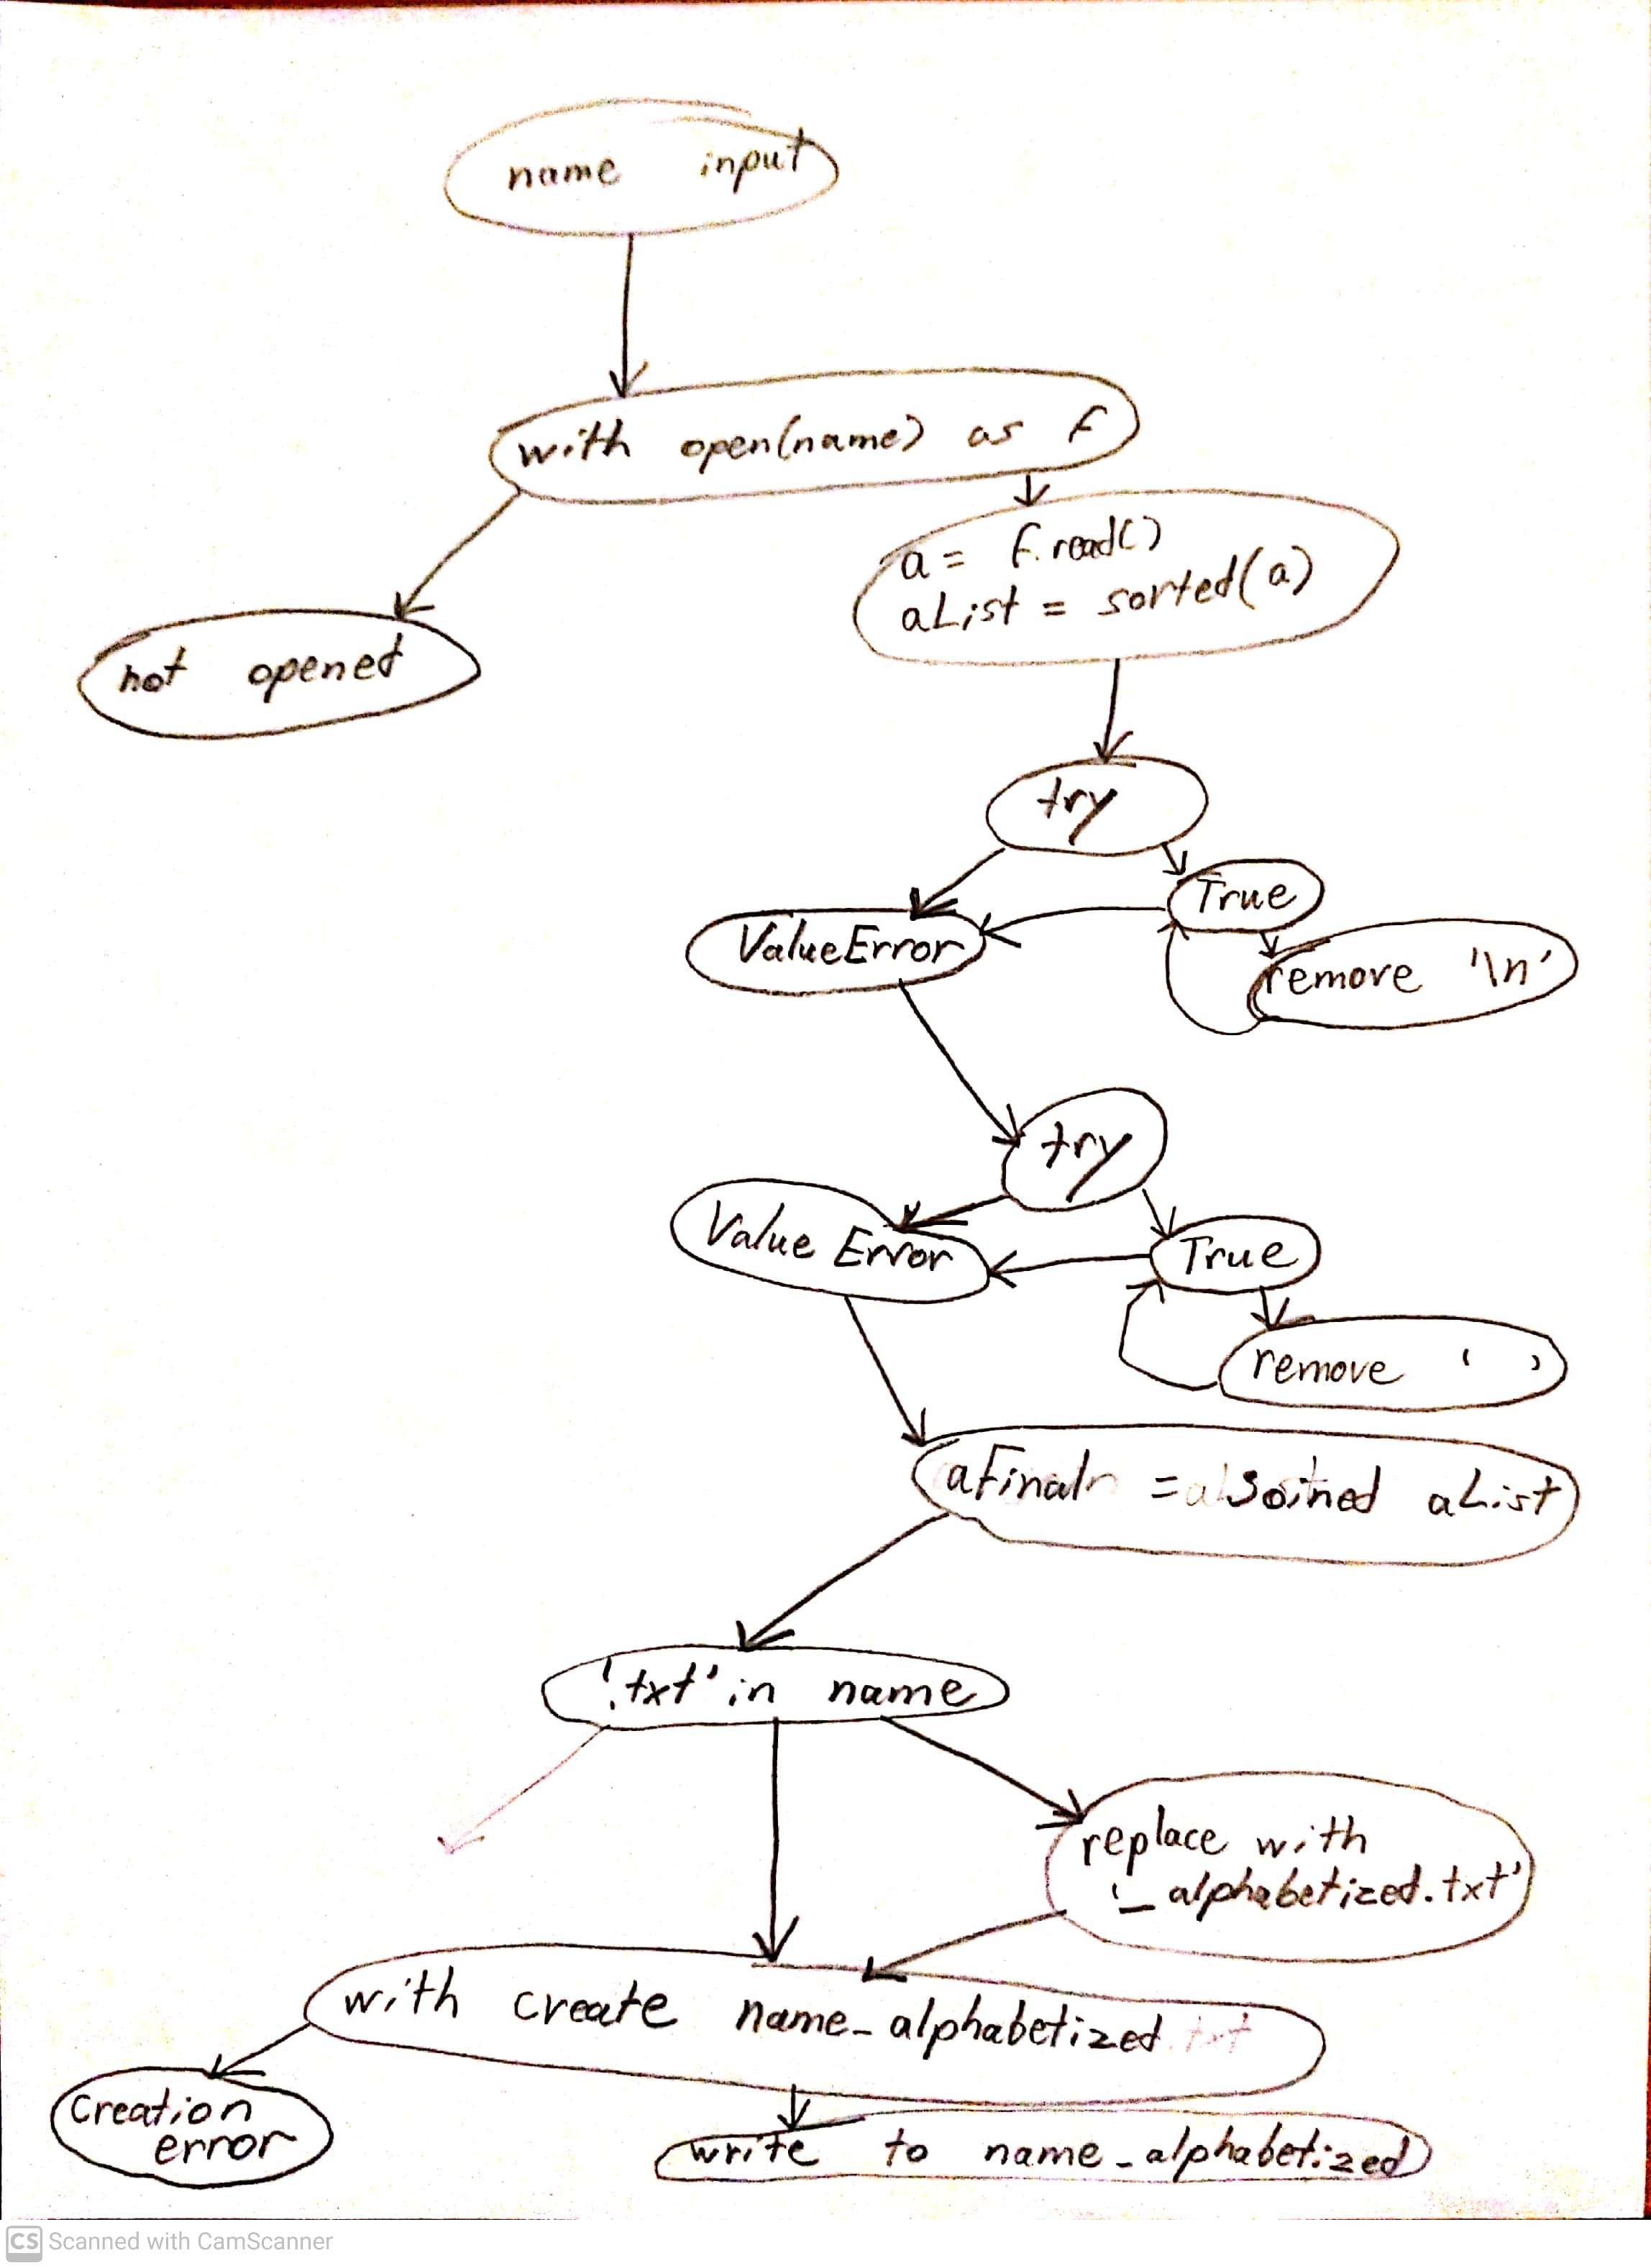 name input
with open(name) as f
a = f.read()
aList = sorted(a)
not opened
try
True
ValueError
remove '\n'
try
Value Error
True
remove ' '
aFinal = aList
'.txt' in name
replace with
'_alphabetized.txt'
with create name_alphabetized.txt
Creation
error
write to name_alphabetized
CS Scanned with CamScanner